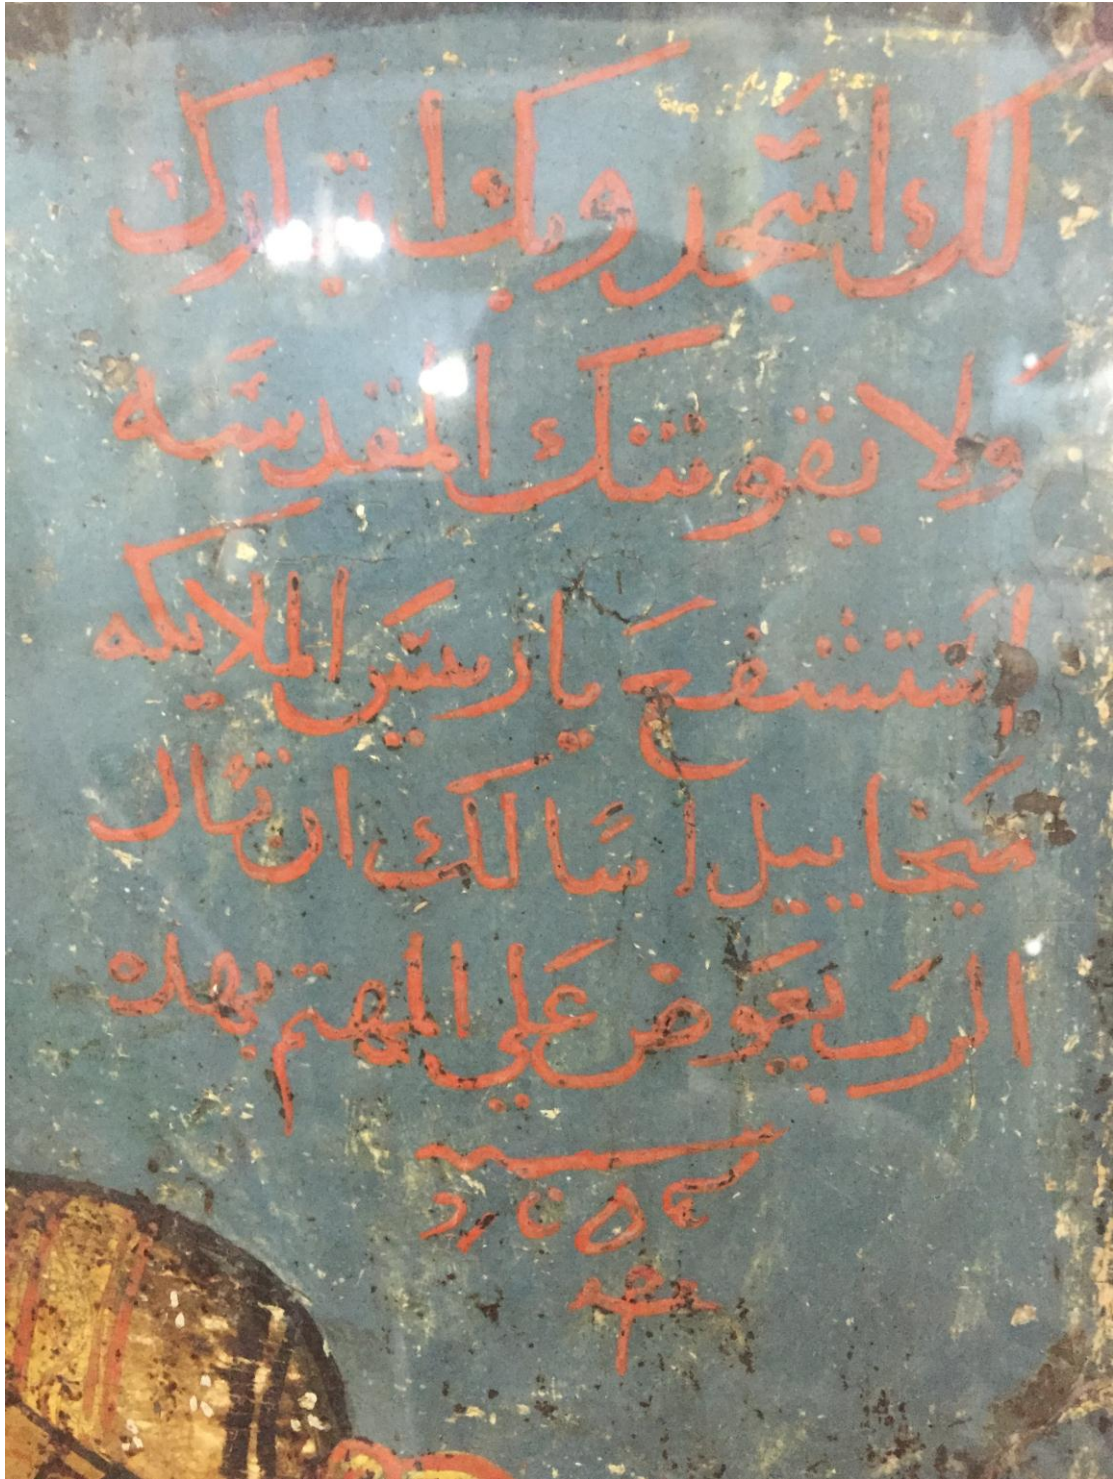 لك اسَجد وبك اتبارك
وَلا يقونتك المقدسَه
استشفعَ يا رييسَ الملايكه
مَيخاييل اسَالك ان تسَال
الربَ يعَوض عَلي المهتم بهده
سنة